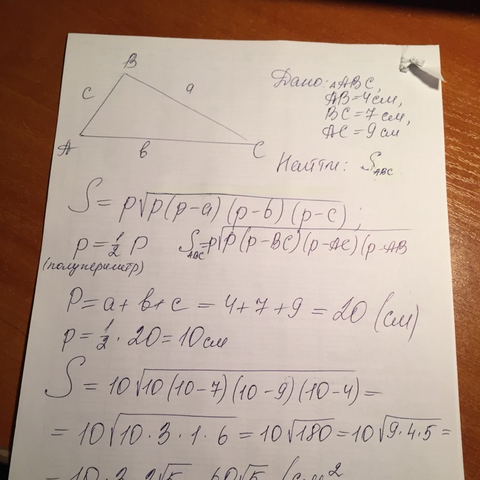 B
c a
A b C
Дано: △ABC,
AB=4см,
BC=7см,
AC=9см
Найти: S_ABC
S = p√(p(p-a)(p-b)(p-c));
p = 1/2 P S_ABC=p√(p(p-BC)(p-AC)(p-AB
(полупериметр)
P = a + b + c = 4+7+9 = 20 (см)
p = 1/2 · 20 = 10см
S = 10√(10(10-7)(10-9)(10-4)) =
= 10√(10·3·1·6) = 10√180 = 10√(9·4·5) =
= 10·3·2√5 = 60√5 (см²